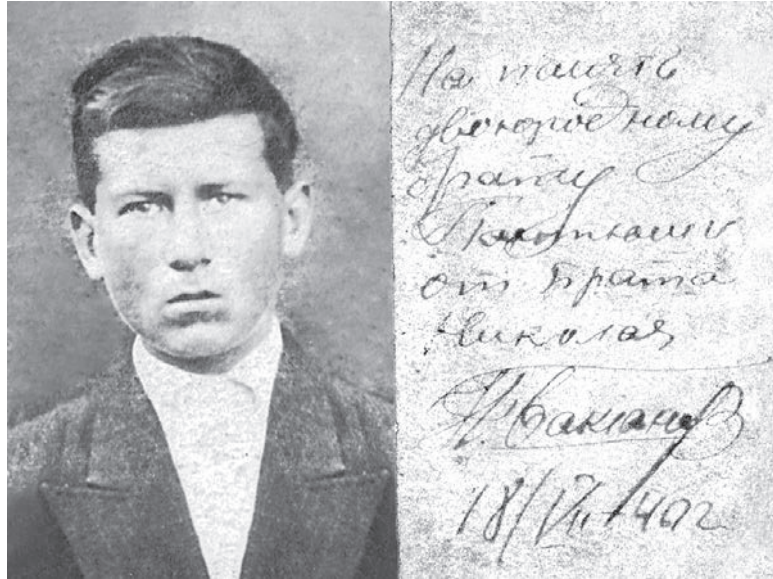 На память
двоюродному
брату
от брата
Николая
18/VII-40г